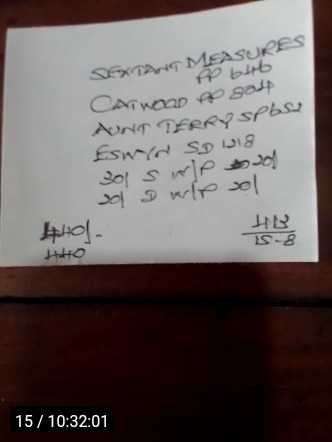 SEXTANT MEASURES
PP 646
CATWOOD PP 804
AUNT TERRY SP 652
ESWYN SD 1218
30/ S W/P 20/
20/ D W/P 20/
440/-
440
15-8
15 / 10:32:01